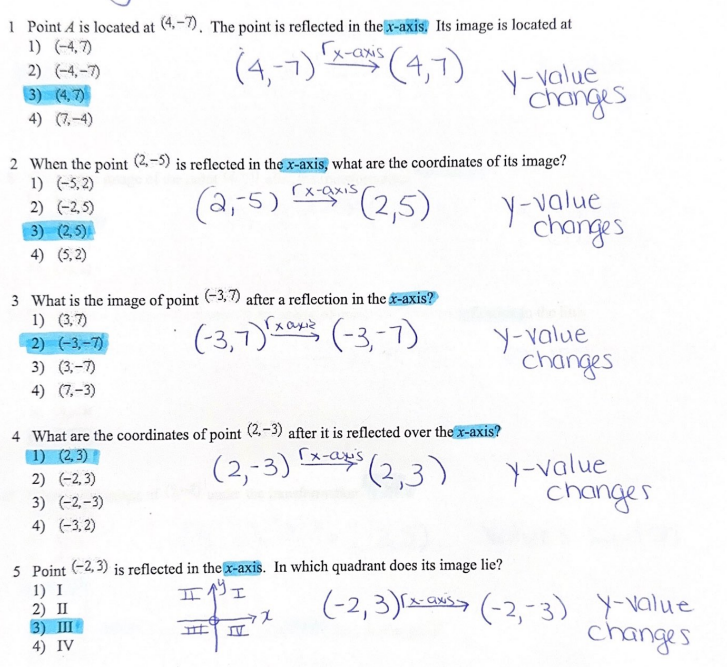 1 Point A is located at (4,−7). The point is reflected in the x-axis. Its image is located at
1) (−4,7)
2) (−4,−7)
3) (4,7)
4) (7,−4)
(4,-7) r x-axis → (4,7)
y-value
changes
2 When the point (2,−5) is reflected in the x-axis, what are the coordinates of its image?
1) (−5,2)
2) (−2,5)
3) (2,5)
4) (5,2)
(2,-5) r x-axis → (2,5)
y-value
changes
3 What is the image of point (−3,7) after a reflection in the x-axis?
1) (3,7)
2) (−3,−7)
3) (3,−7)
4) (7,−3)
(-3,7) r x axis → (-3,-7)
y-value
changes
4 What are the coordinates of point (2,−3) after it is reflected over the x-axis?
1) (2,3)
2) (−2,3)
3) (−2,−3)
4) (−3,2)
(2,-3) r x-axis → (2,3)
y-value
changes
5 Point (−2,3) is reflected in the x-axis. In which quadrant does its image lie?
1) I
2) II
3) III
4) IV
II y I
x
III IV
(-2,3) r x-axis → (-2,-3)
y-value
changes